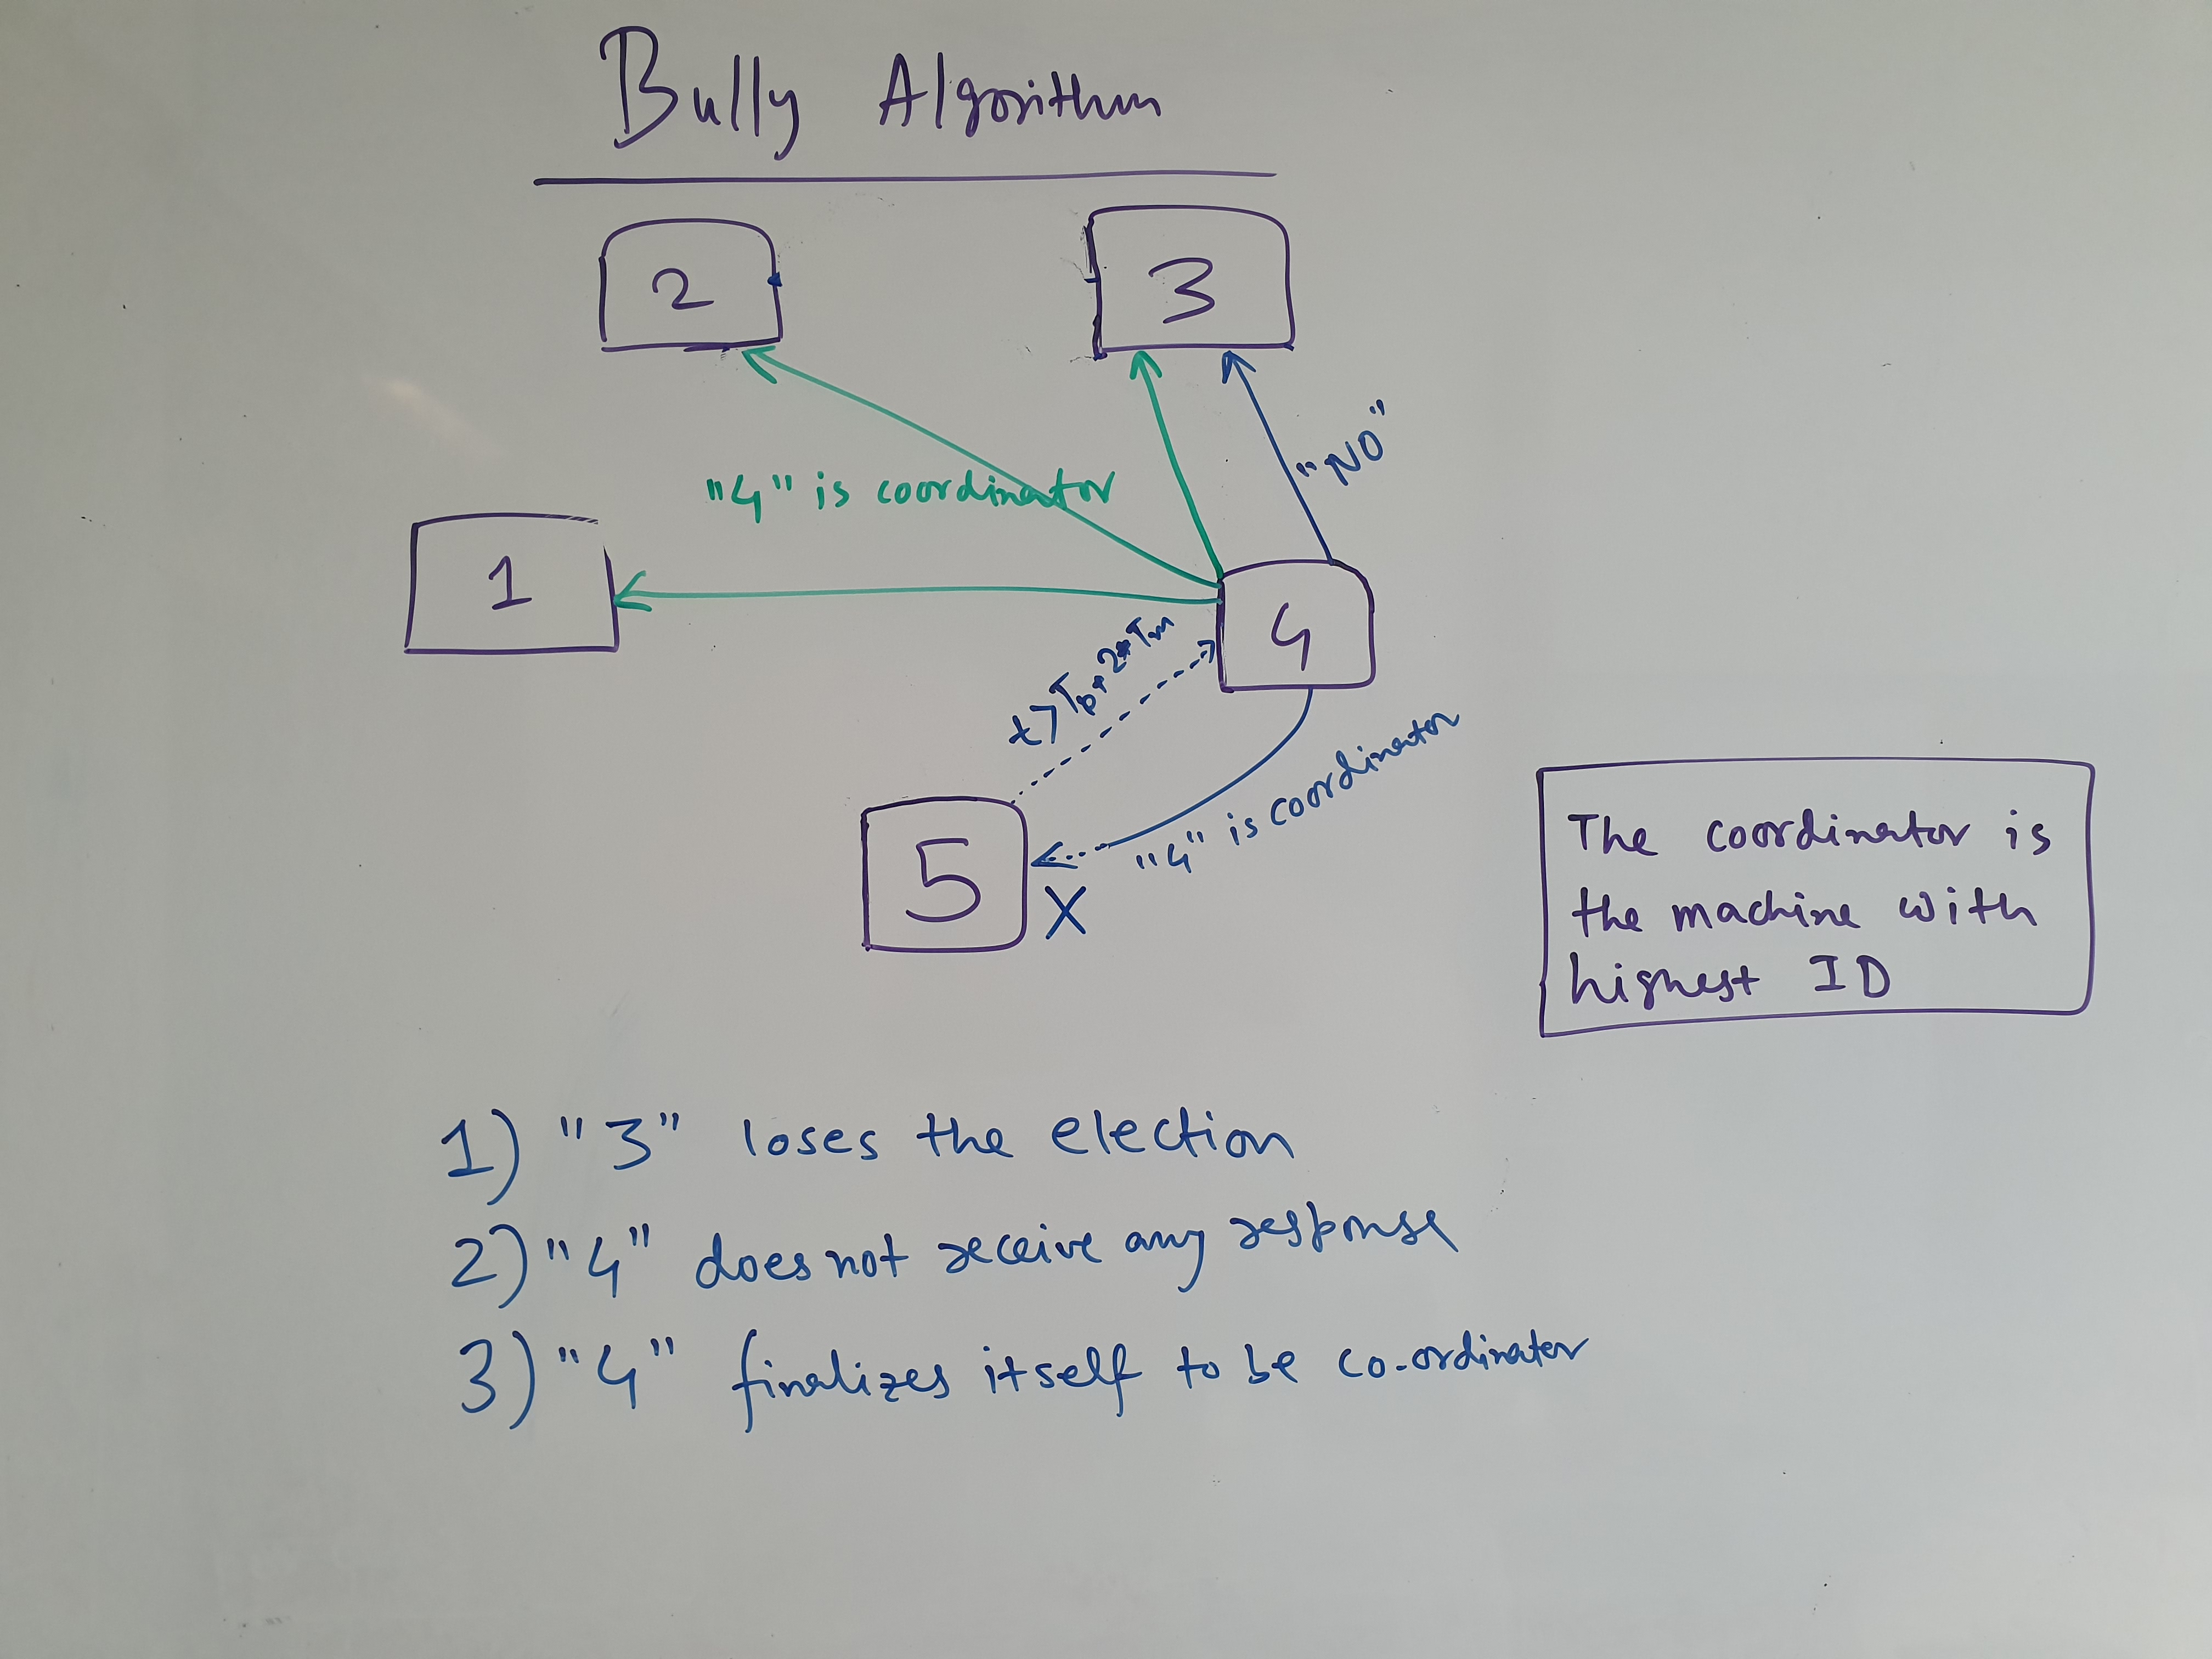 Bully Algorithm
2
3
"NO"
"4" is coordinator
1
4
t > Tp + 2*Tm
"4" is coordinator
5
X
The coordinator is
the machine with
highest ID
1) "3" loses the election
2) "4" does not receive any response
3) "4" finalizes itself to be co-ordinator